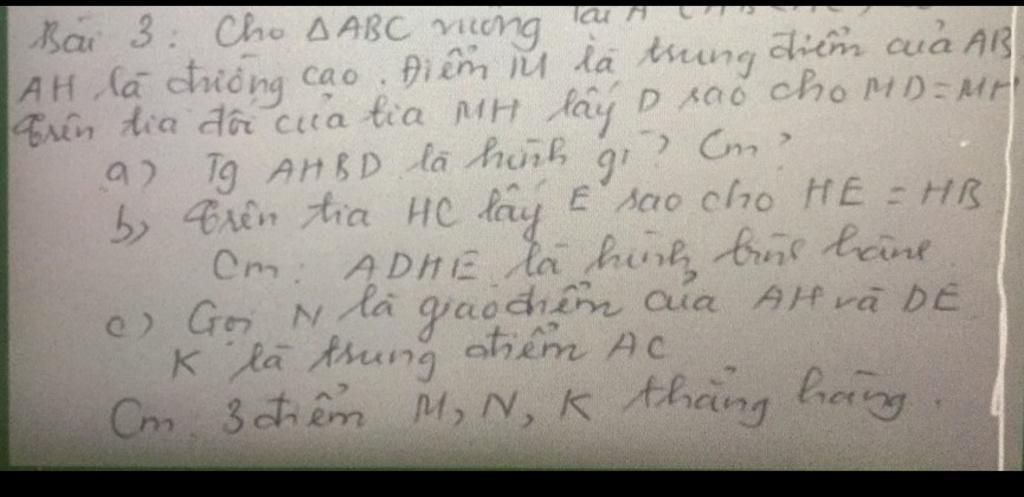 Bài 3: Cho ΔABC vuông tại A
AH là đường cao. Điểm M là trung điểm của AB
Trên tia đối của tia MH lấy D sao cho MD = MH
a) Tg AHBD là hình gì? Cm?
b) Trên tia HC lấy E sao cho HE = HB
Cm: ADHE là hình bình hành
c) Gọi N là giao điểm của AH và DE
K là trung điểm AC
Cm 3 điểm M, N, K thẳng hàng.